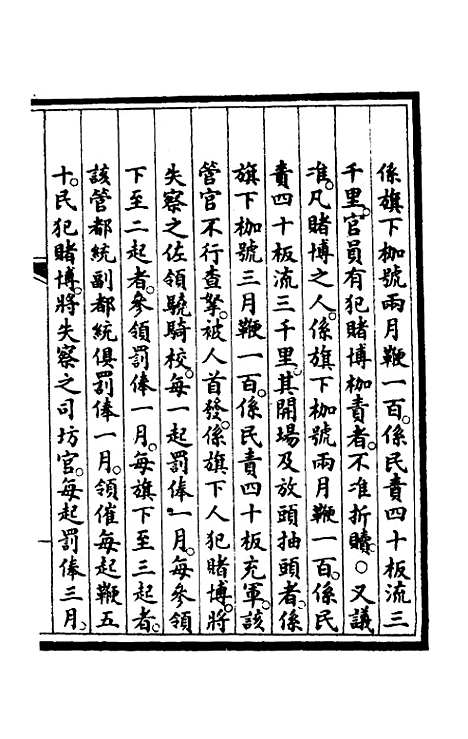 係旗下枷號兩月鞭一百。係民責四十板流三
千里。官員有犯賭博枷責者。不准折贖。○又議
准。凡賭博之人。係旗下枷號兩月鞭一百。係民
責四十板流三千里。其開場及放頭抽頭者。係
旗下枷號三月鞭一百。係民責四十板充軍。該
管官不行查拏。被人首發。係旗下人犯賭博。將
失察之佐領驍騎校。每一起罰俸一月。每參領
下至二起者。參領罰俸一月。每旗下至三起者。
該管都統副都統俱罰俸一月。領催每起鞭五
十。民犯賭博。將失察之司坊官。每起罰俸三月。